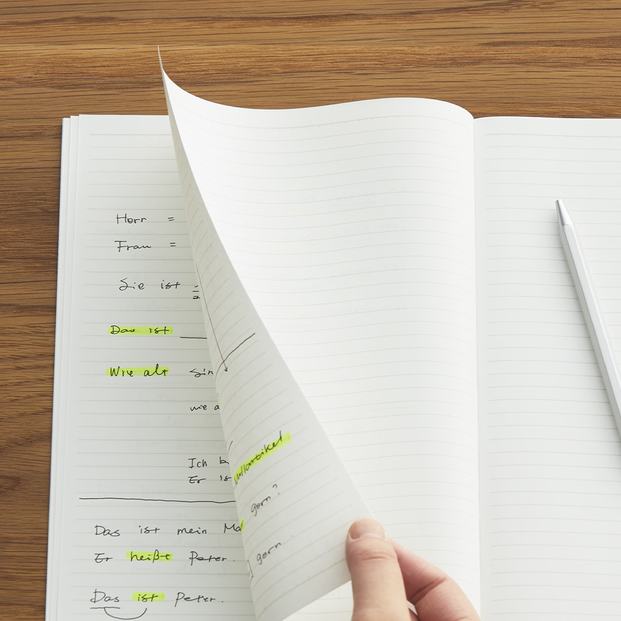 Herr =
Frau =
Sie ist
Das ist
Wie alt Sin
wie a
Ich b
Er is
Das ist mein Ma
Er heißt Peter.
Das ist Peter.
ullartikel
gern?
gern.